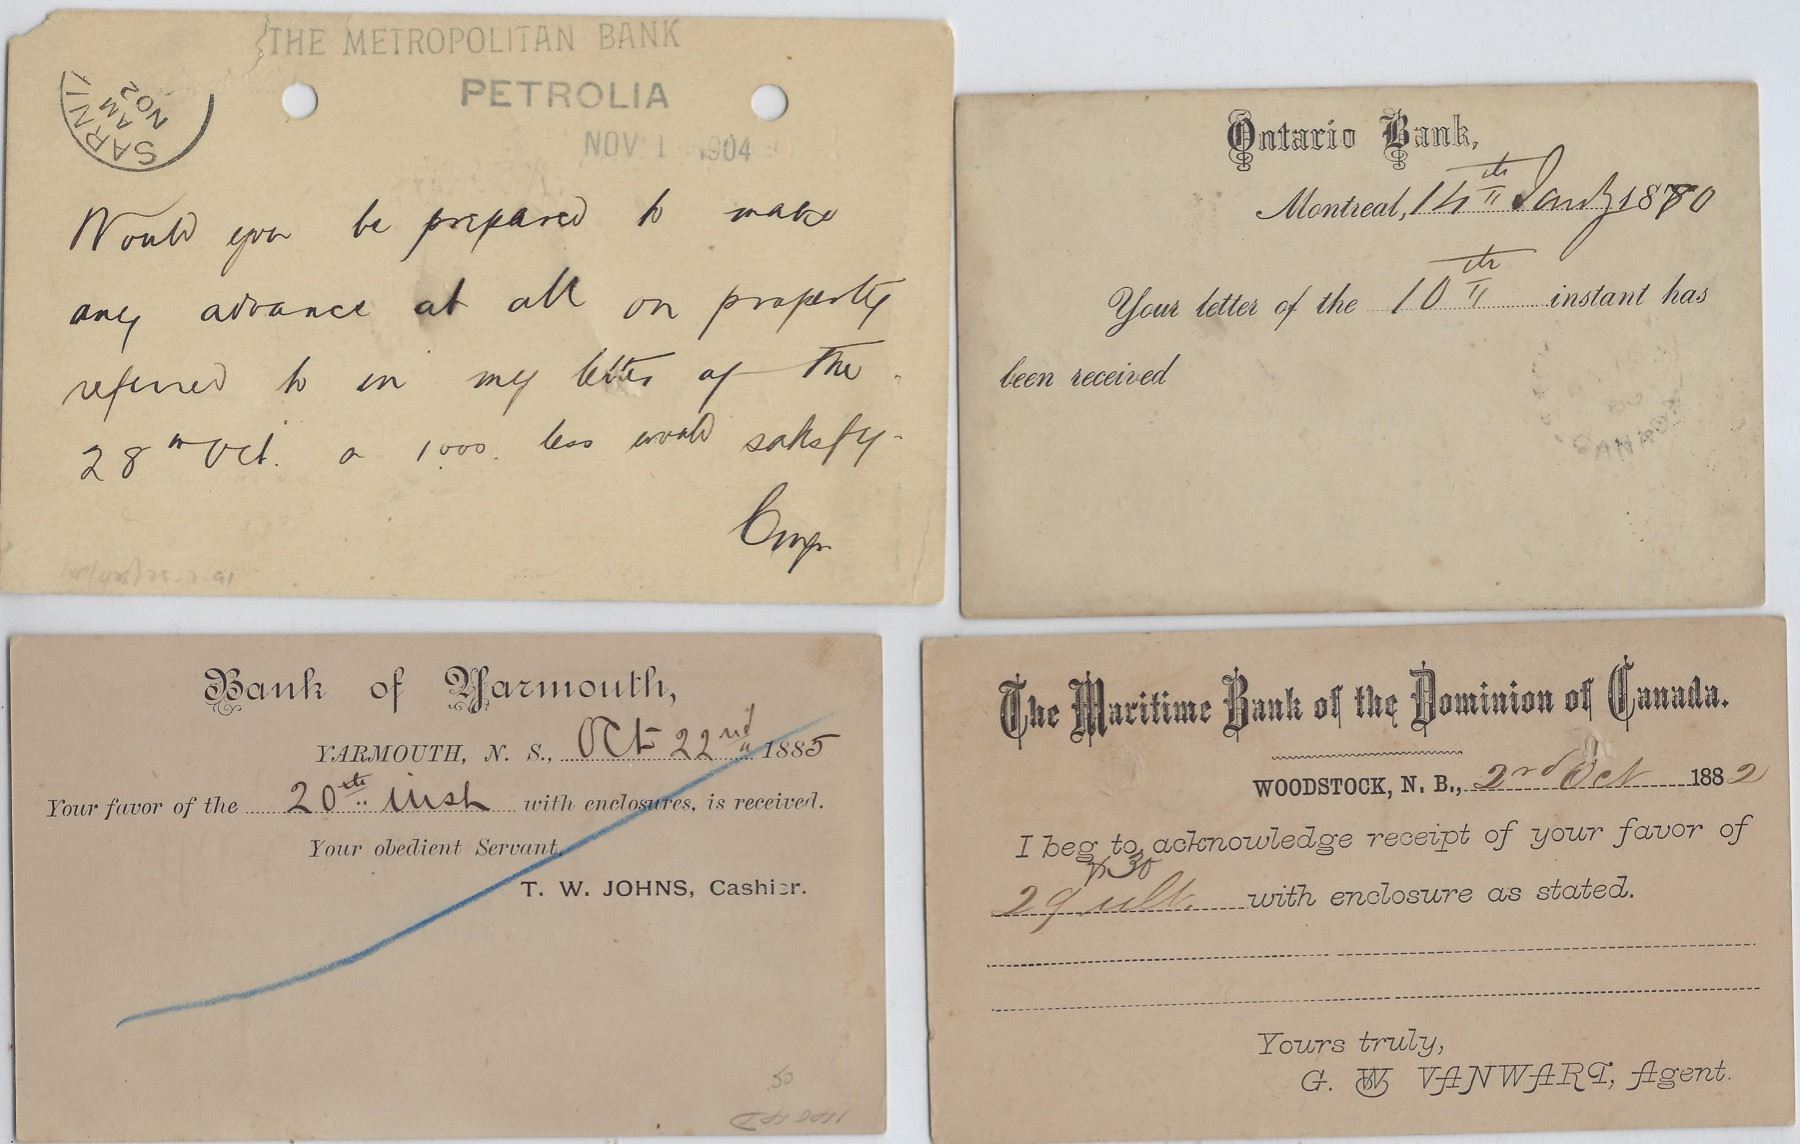 THE METROPOLITAN BANK
PETROLIA
NOV 1 1904
SARNI
AM
NO 2
Would you be prepared to make
any advance at all on property
referred to in my letter of the
28th Oct. a 1000. less would satisfy.
Ontario Bank,
Montreal, 14th Jany 1880
Your letter of the 10th instant has
been received
Bank of Yarmouth,
YARMOUTH, N. S., Oct 22nd 1885
Your favor of the 20th inst with enclosures, is received.
Your obedient Servant,
T. W. JOHNS, Cashier.
50
The Maritime Bank of the Dominion of Canada.
WOODSTOCK, N. B., 2nd Oct 1882
I beg to acknowledge receipt of your favor of
& 30
29 ult. with enclosure as stated.
Yours truly,
G. W VANWART, Agent.